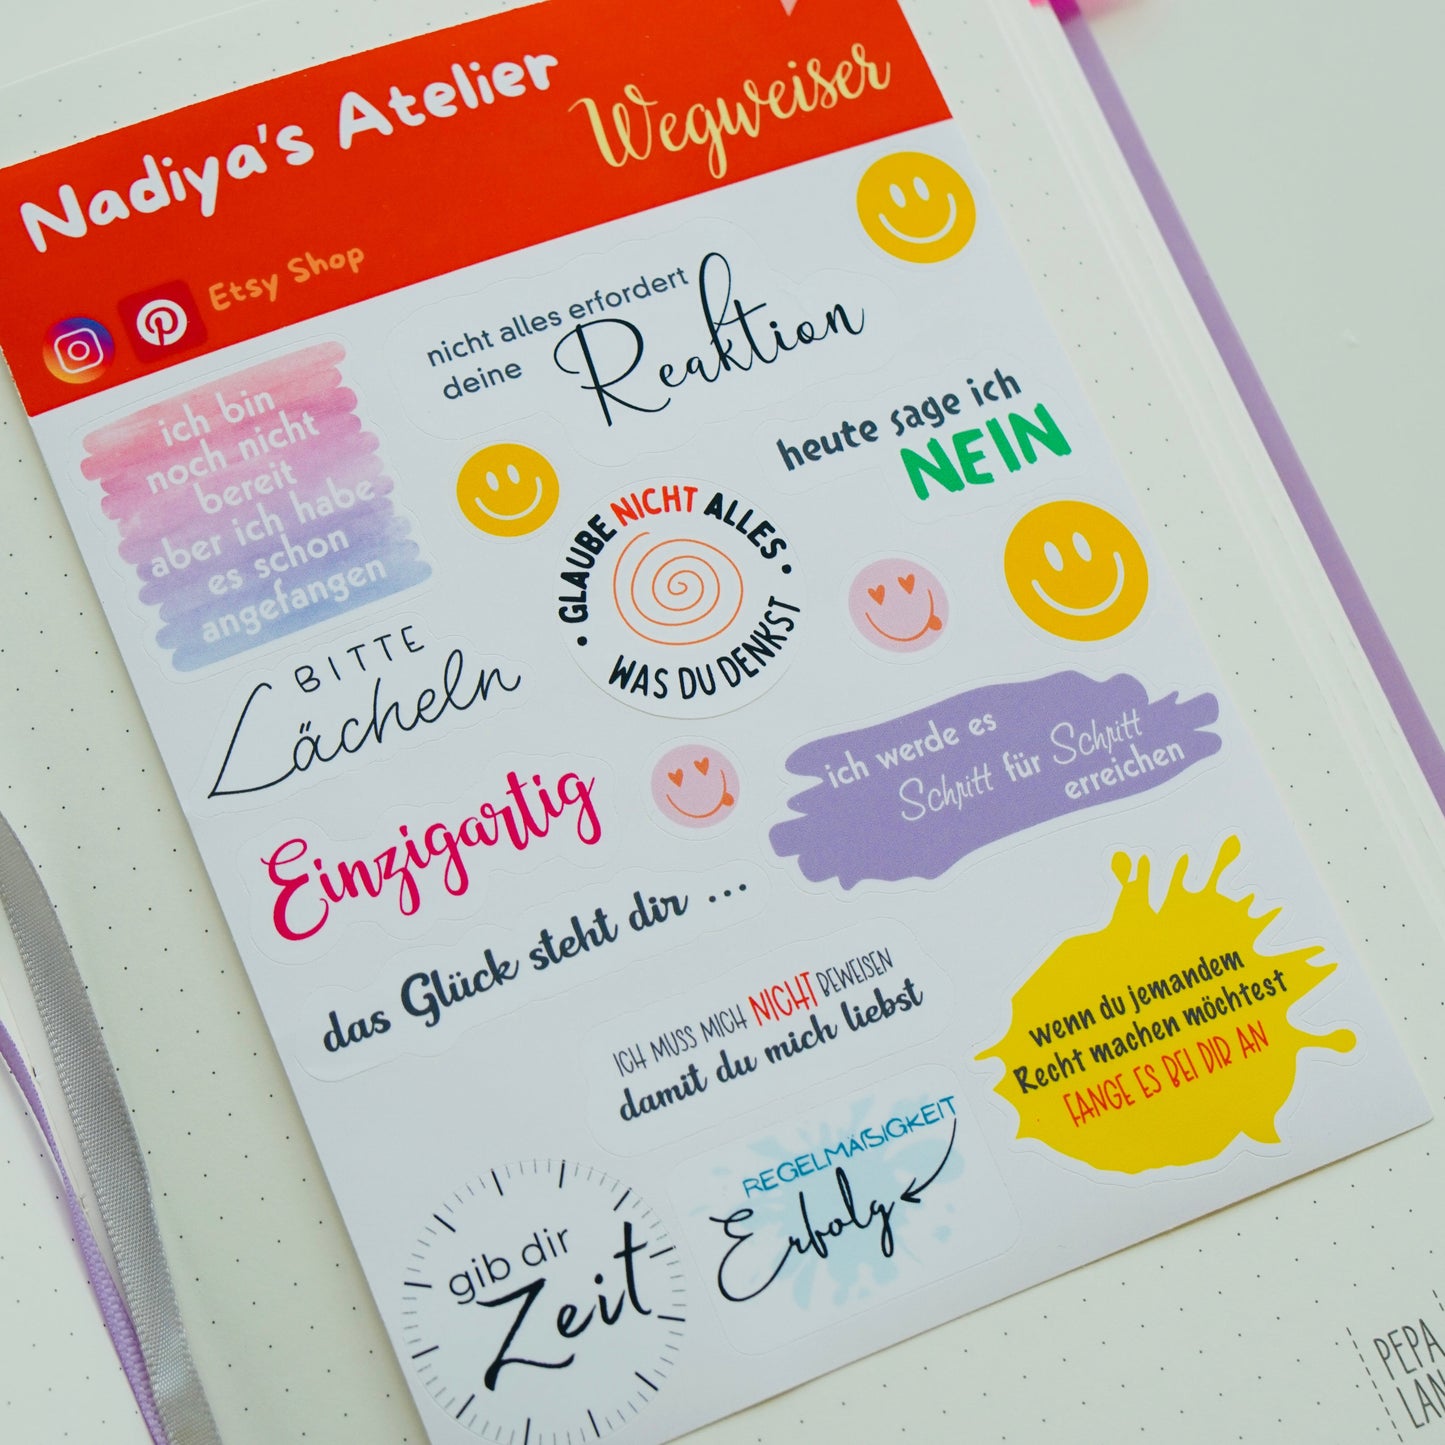 Nadiya's Atelier
Wegweiser
Etsy Shop
nicht alles erfordert
deine Reaktion
ich bin
noch nicht
bereit
aber ich habe
es schon
angefangen
heute sage ich
NEIN
• GLAUBE NICHT ALLES •
WAS DU DENKST
BITTE
Lächeln
ich werde es
Schritt für Schritt
erreichen
Einzigartig
das Glück steht dir ...
ICH MUSS MICH NICHT BEWEISEN
damit du mich liebst
wenn du jemandem
Recht machen möchtest
FANGE ES BEI DIR AN
REGELMÄßIGKEIT
Erfolg
gib dir
Zeit
PEPA
LAN